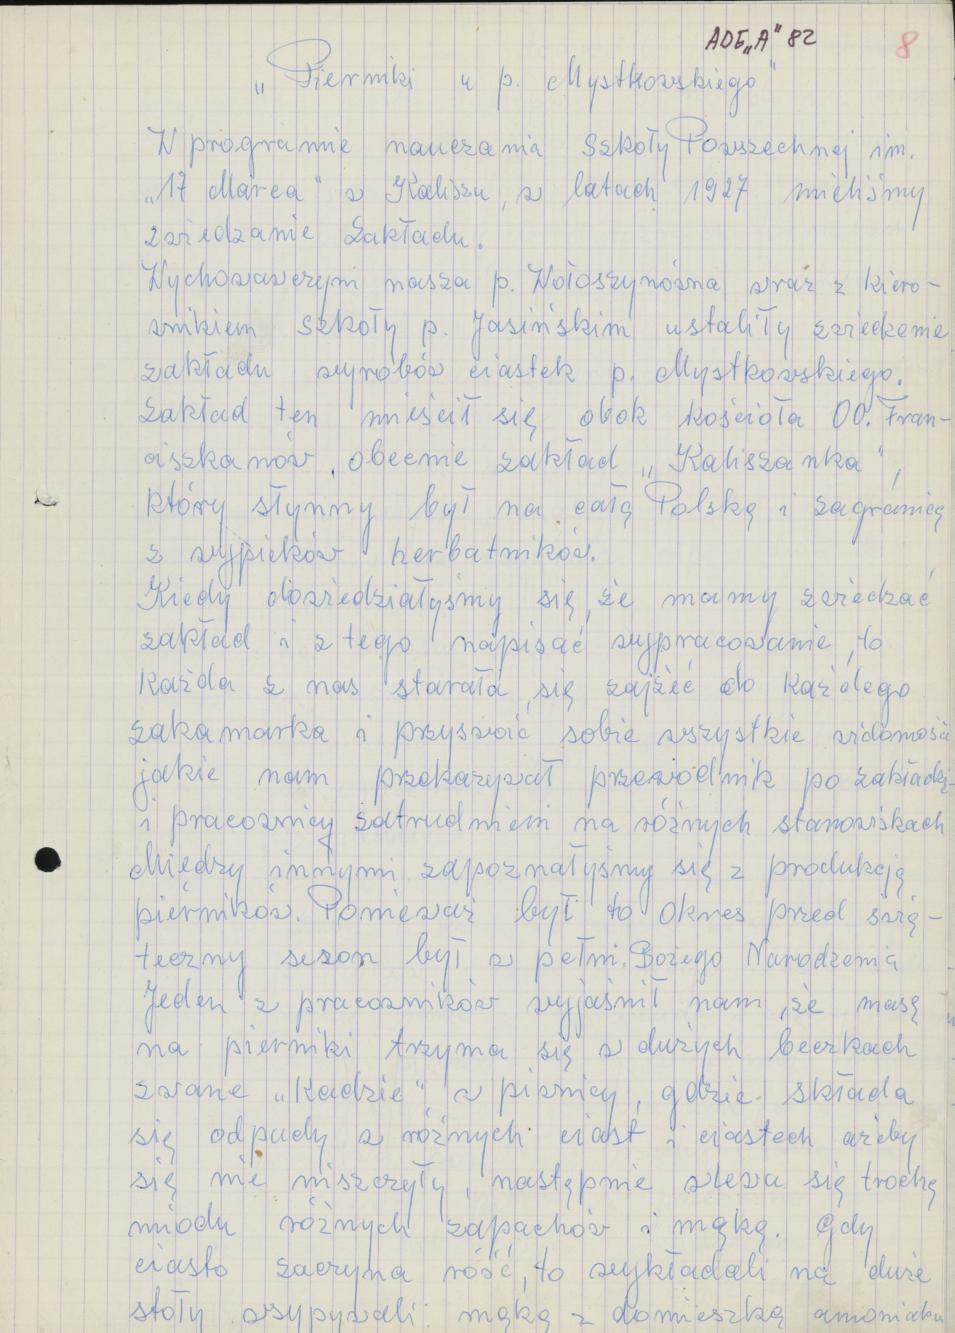 ADE „A" 82
8
„Pierniki u p. Mystkowskiego"
W programie nauczania Szkoły Powszechnej im.
„17 Marca" w Kaliszu, w latach 1927 mieliśmy
zwiedzanie Zakładu.
Wychowawczyni nasza p. Wołoszynówna wraz z kiero-
wnikiem szkoły p. Jasińskim ustaliły zwiedzenie
zakładu wyrobów ciastek p. Mystkowskiego.
Zakład ten mieścił się obok kościoła OO. Fran-
ciszkanów, obecnie zakład „Kaliszanka",
który słynny był na całą Polskę i zagranicą
z wypieków herbatników.
Kiedy dowiedziałyśmy się, że mamy zwiedzać
zakład i z tego napisać wypracowanie, to
każda z nas starała się zajżeć do każdego
zakamarka i przyswoić sobie wszystkie widomości
jakie nam przekazywał przewodnik po zakładzie
i pracownicy zatrudnieni na różnych stanowiskach
Między innymi zapoznałyśmy się z produkcją
pierników. Ponieważ był to okres przed świą-
teczny sezon był w pełni. Bożego Narodzenia
Jeden z pracowników wyjaśnił nam, że masę
na pierniki trzyma się w dużych beczkach
zwane „Kadzie", w piwnicy, gdzie składa
się odpady z różnych ciast i ciastech ażeby
się nie niszczyły, następnie wlewa się trochę
miodu różnych zapachów i mąkę. Gdy
ciasto zaczyna róść, to wykładali na duże
stoły wsypywali mąkę z domieszką amoniaku